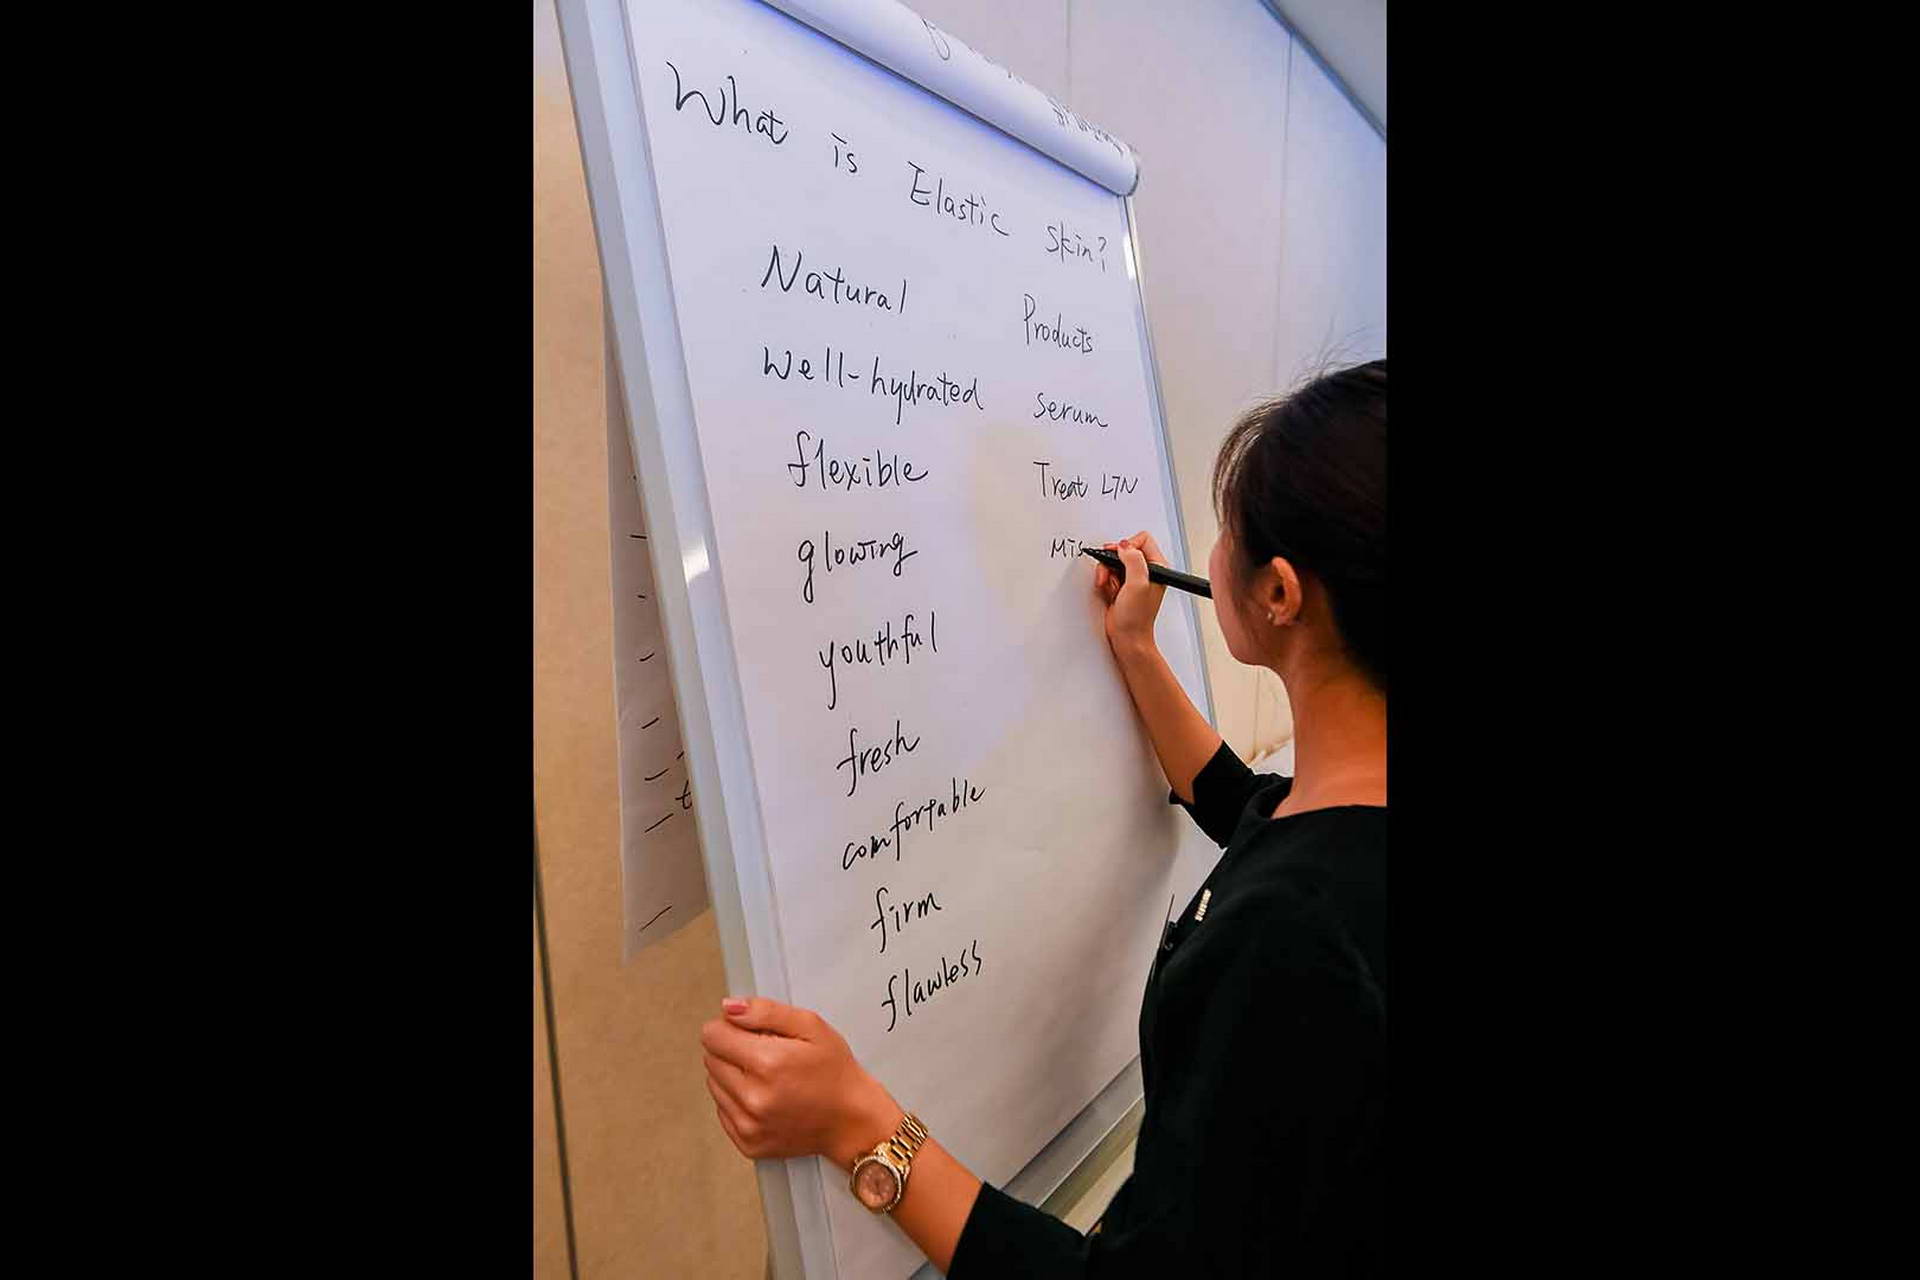 What is Elastic skin?
Natural
Well-hydrated
flexible
glowing
youthful
fresh
comfortable
firm
flawless
Products
serum
Treat LTN
Mis